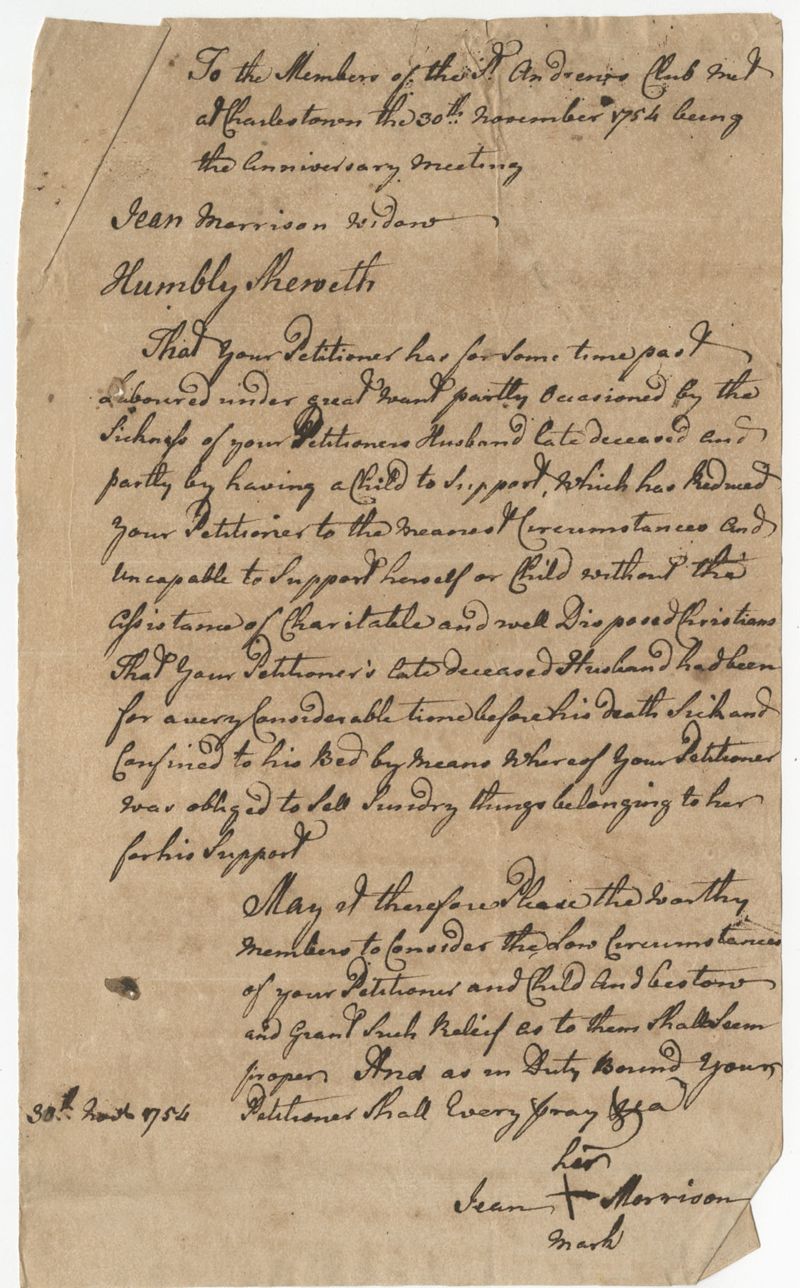 To the Members of the St. Andrews Club Met
at Charlestown the 30th. November 1754 being
the Anniversary Meeting
Jean Morrison Widow
Humbly Sheweth
That Your Petitioner has for Some time past
Laboured under great Want partly Occasioned by the
Sickness of your Petitioners Husband late deceased and
partly by having a Child to Support, Which has Reduced
Your Petitioner to the Meanest Circumstances And
Uncapable to Support herself or Child without the
Assistance of Charitable and well Disposed Christians
That Your Petitioner's late deceased Husband had been
for a very Considerable time before his death Sick and
Confined to his Bed by Means Whereof Your Petitioner
was obliged to Sell Sundry things belonging to her
for his Support
May it therefore Please the worthy
Members to Consider the Low Circumstances
of your Petitioner and Child And bestow
and Grant Such Relief as to them Shall Seem
proper And as in Duty Bound Your
30th. Novr 1754 Petitioner Shall Every pray
her
Jean + Morrison
Mark